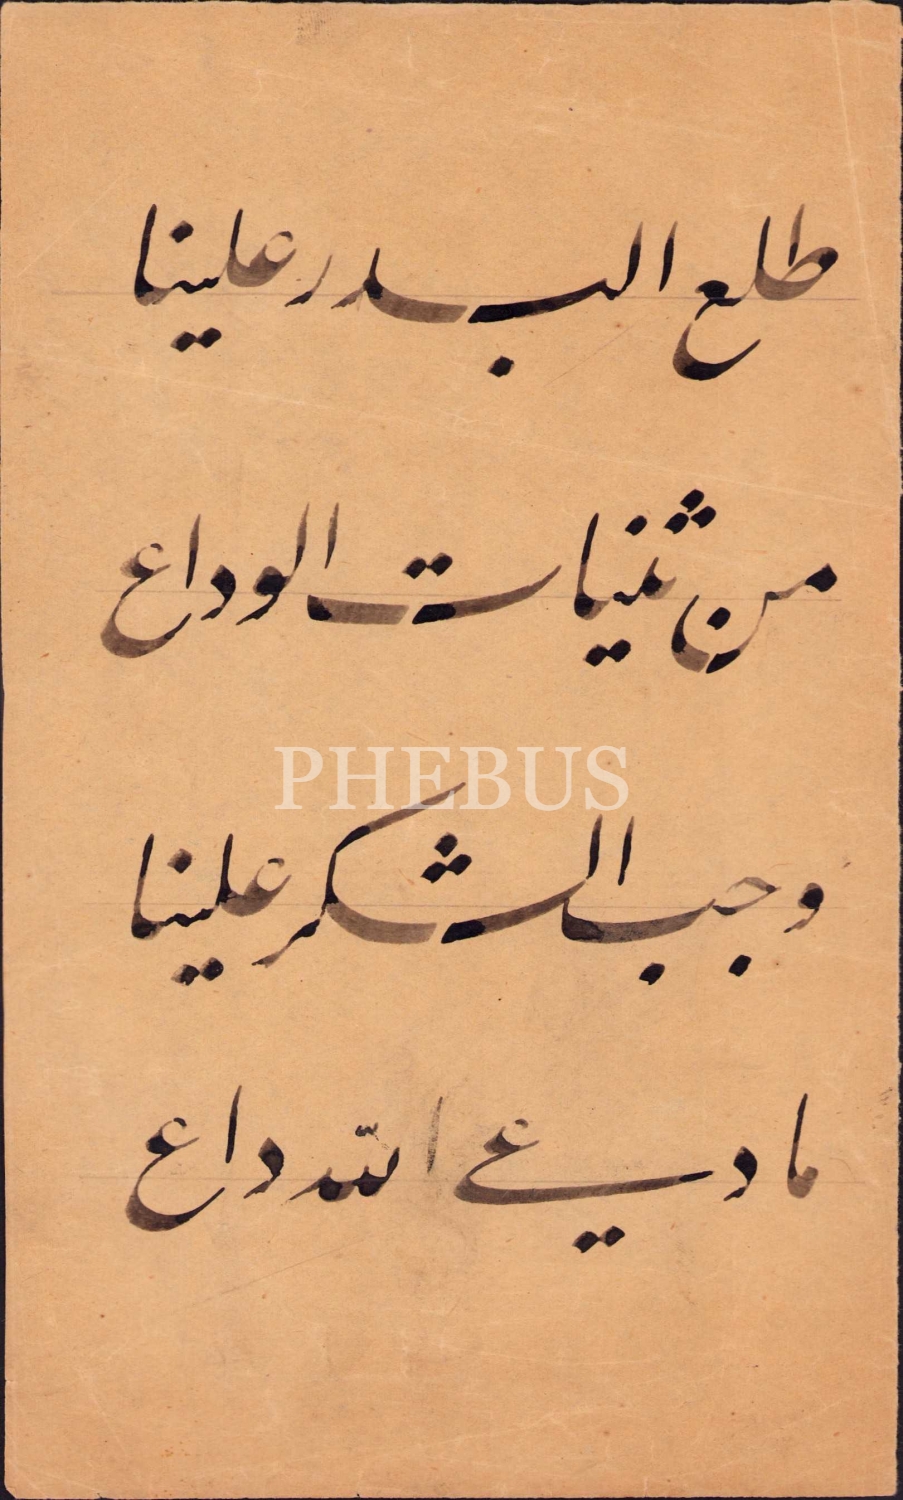 طلع البدر علينا
من ثنيات الوداع
PHEBUS
وجب الشكر علينا
ما دعى الله داع